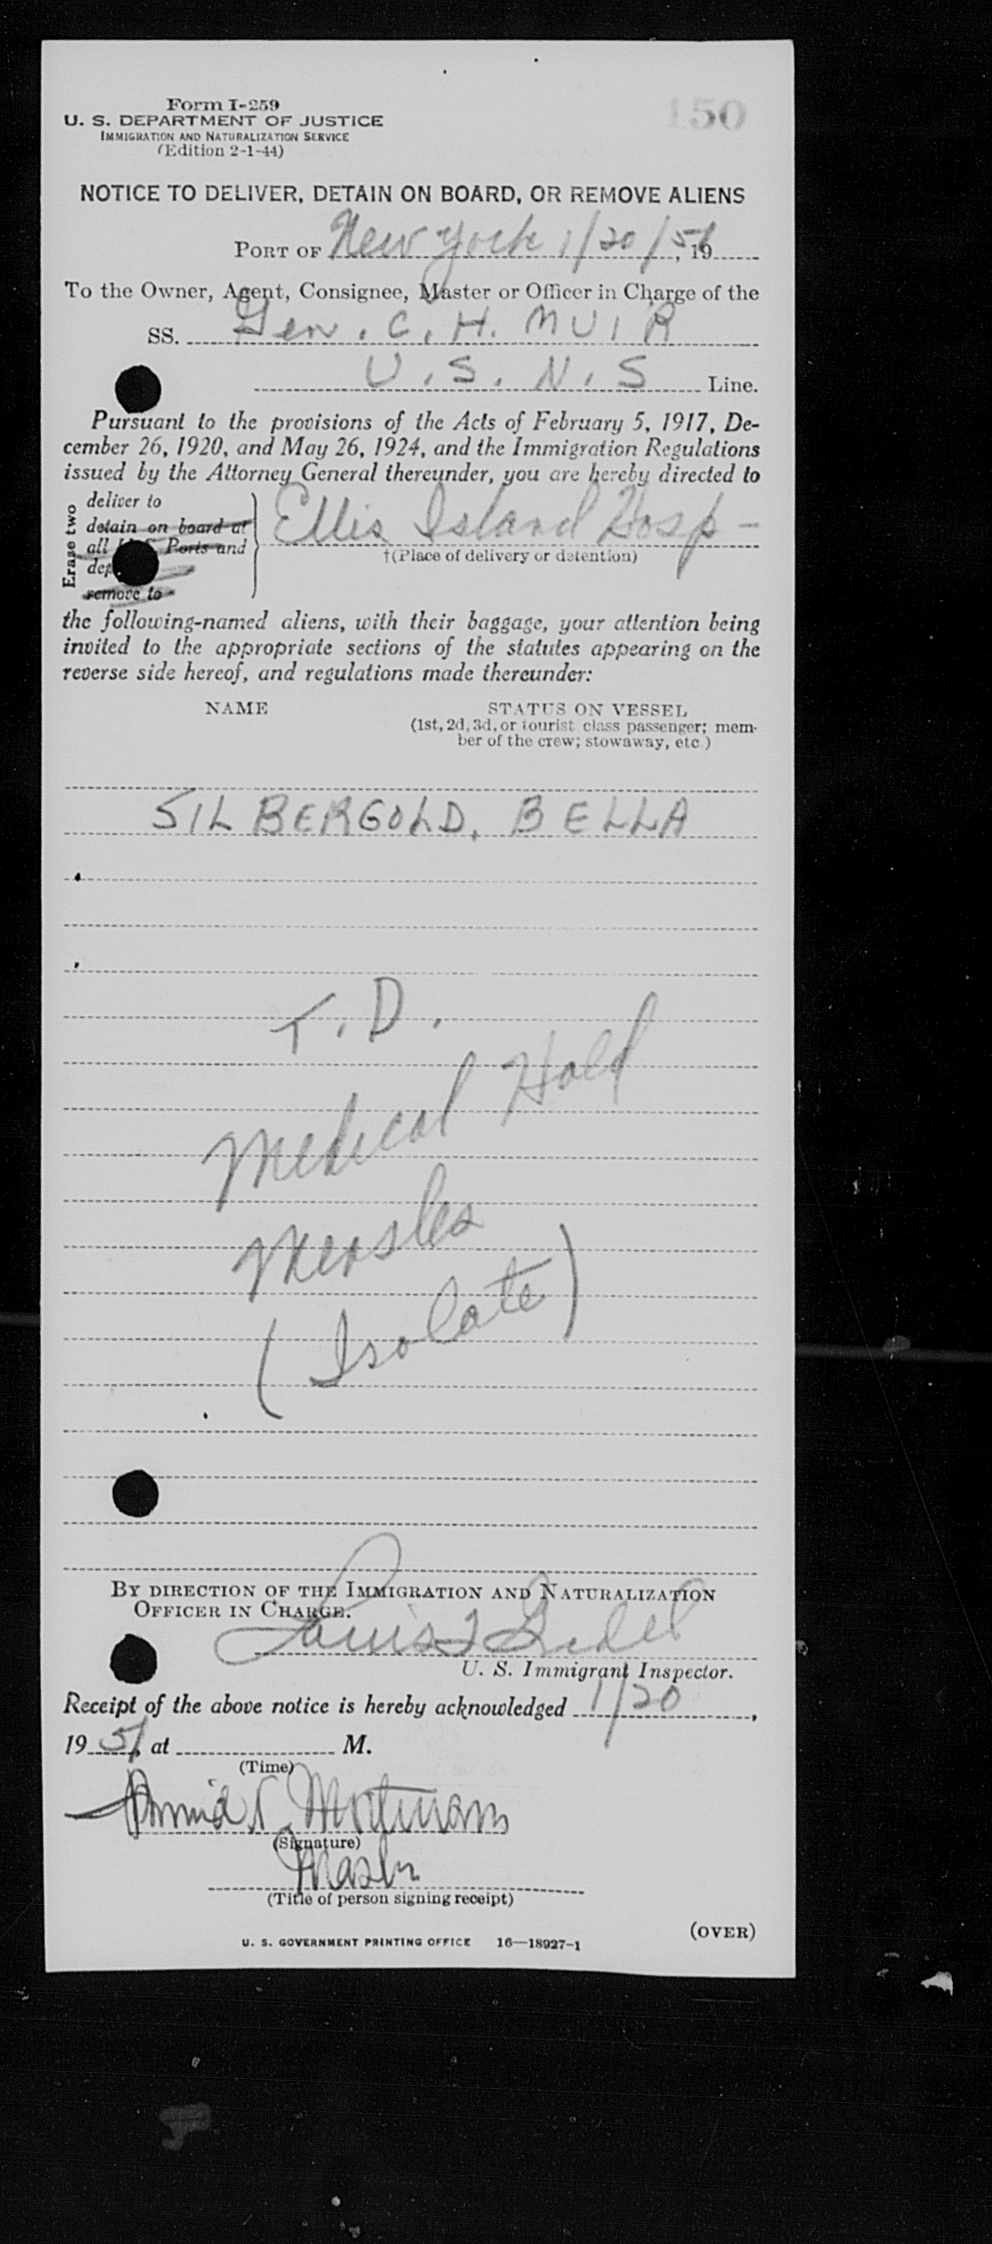 Form I-259
150
U. S. DEPARTMENT OF JUSTICE
IMMIGRATION AND NATURALIZATION SERVICE
(Edition 2-1-44)
NOTICE TO DELIVER, DETAIN ON BOARD, OR REMOVE ALIENS
PORT OF New York 1/20/51, 19
To the Owner, Agent, Consignee, Master or Officer in Charge of the
SS. Gen. C. H. MUIR
U. S. N. S Line.
Pursuant to the provisions of the Acts of February 5, 1917, De-
cember 26, 1920, and May 26, 1924, and the Immigration Regulations
issued by the Attorney General thereunder, you are hereby directed to
Erase two
deliver to
detain on board at
all Ports and
remove to
Ellis Island Hosp-
†(Place of delivery or detention)
the following-named aliens, with their baggage, your attention being
invited to the appropriate sections of the statutes appearing on the
reverse side hereof, and regulations made thereunder:
NAME STATUS ON VESSEL
(1st, 2d, 3d, or tourist class passenger; mem-
ber of the crew; stowaway, etc.)
SILBERGOLD, BELLA
T. D.
Medical Hold
Measles
(Isolate)
BY DIRECTION OF THE IMMIGRATION AND NATURALIZATION
OFFICER IN CHARGE.
Louis
U. S. Immigrant Inspector.
Receipt of the above notice is hereby acknowledged 1/20,
19 51, at M.
(Time)
(Signature)
Master
(Title of person signing receipt)
(OVER)
U. S. GOVERNMENT PRINTING OFFICE 16—18927-1